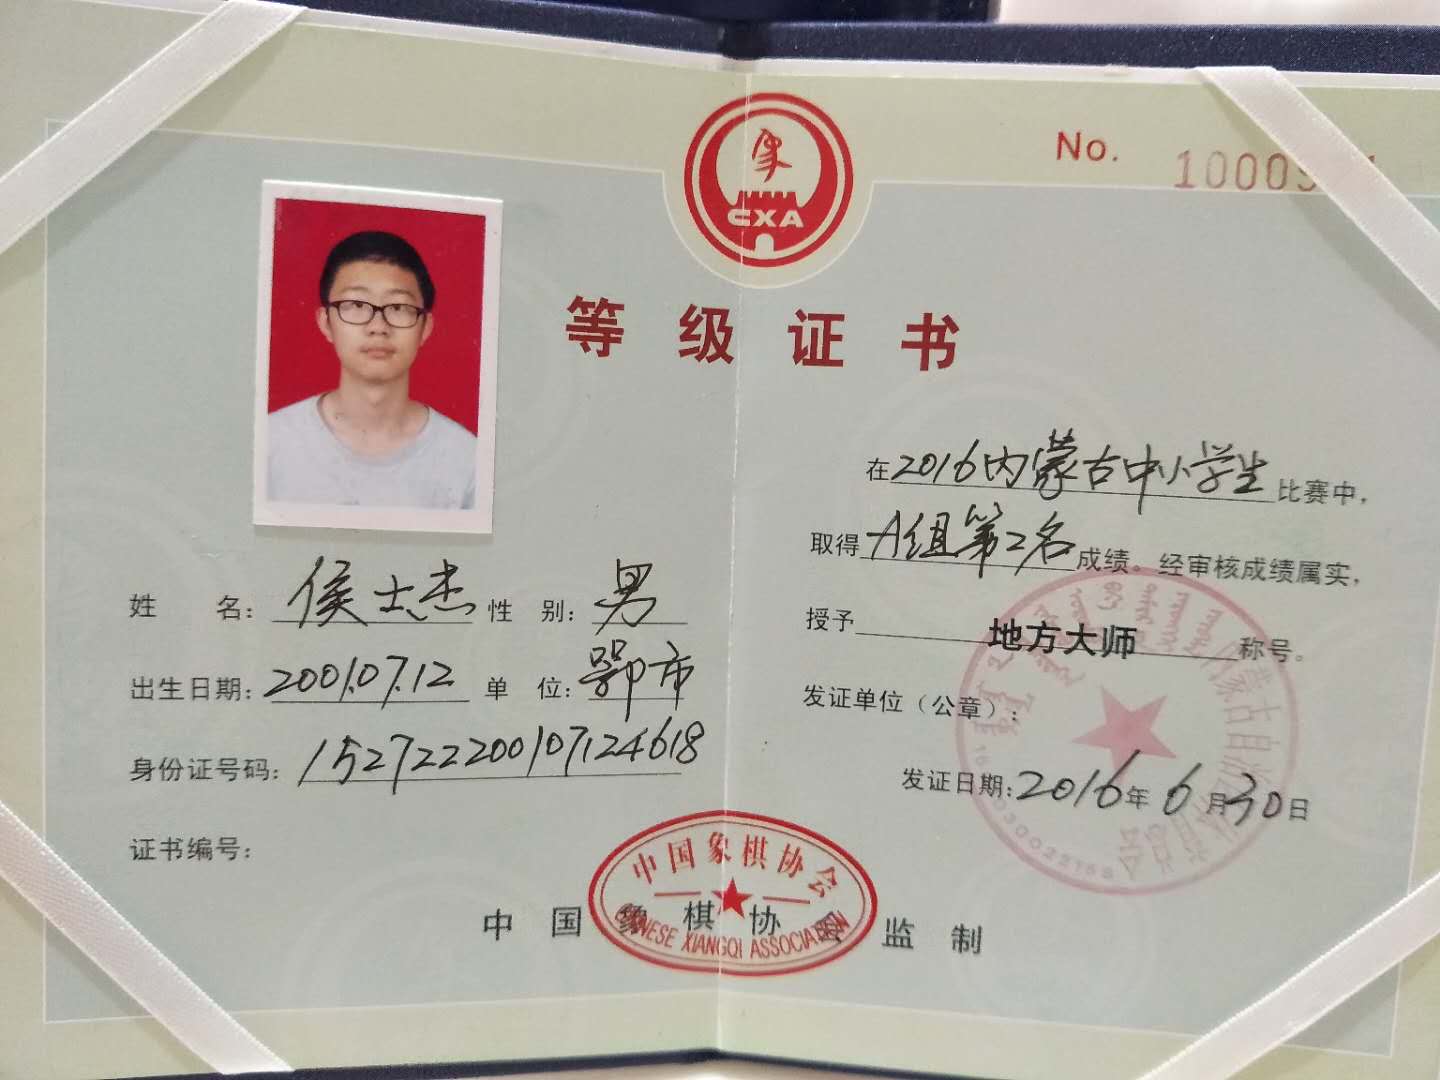 象
CXA
No.
等级证书
姓 名: 侯士杰 性 别: 男
出生日期: 2001.07.12 单 位: 鄂市
身份证号码: 152722200107124618
证书编号:
在2016内蒙古中小学生比赛中,
取得A组第2名成绩。经审核成绩属实,
授予 地方大师 称号。
发证单位(公章):
发证日期: 2016年6月30日
中国象棋协会
CHINESE XIANGQI ASSOCIATION
中国象棋协会监制